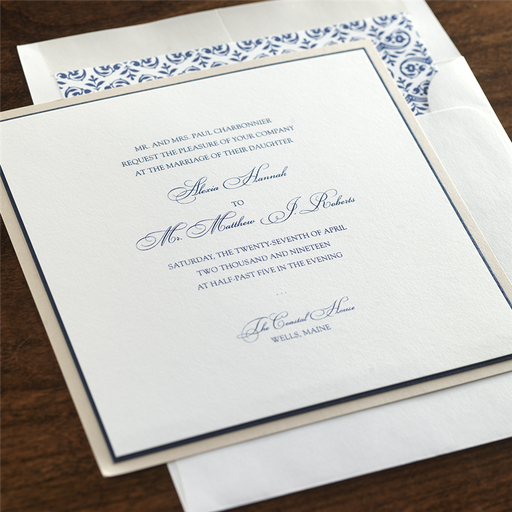 MR. AND MRS. PAUL CHARBONNIER
REQUEST THE PLEASURE OF YOUR COMPANY
AT THE MARRIAGE OF THEIR DAUGHTER
Alexia Hannah
TO
Mr. Matthew J. Roberts
SATURDAY, THE TWENTY-SEVENTH OF APRIL
TWO THOUSAND AND NINETEEN
AT HALF-PAST FIVE IN THE EVENING
...
The Coastal House
WELLS, MAINE